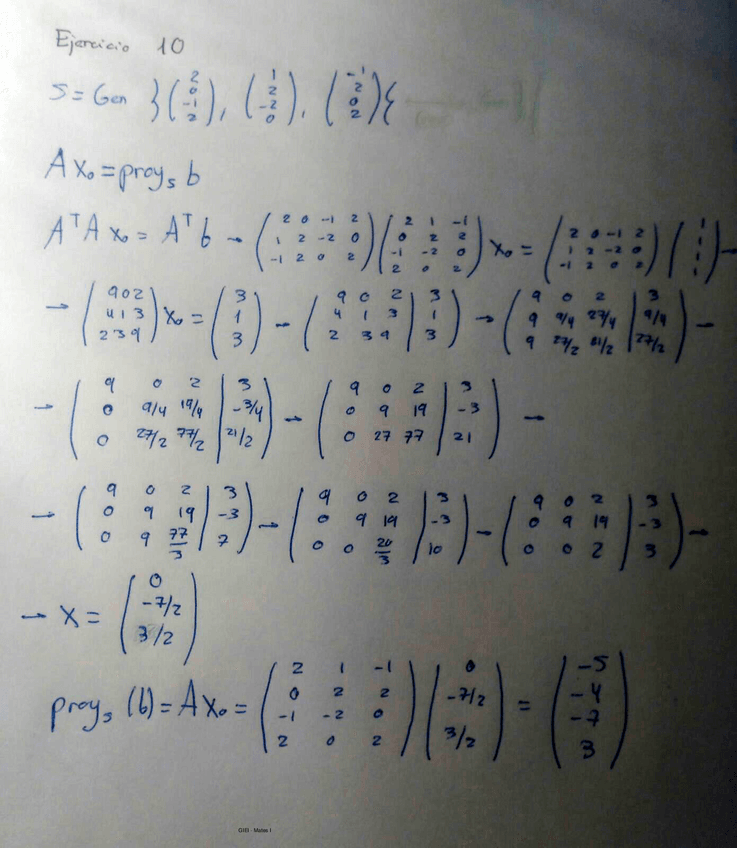 Ejercicio 10
S = Gen }(2 0 -1 2), (1 2 -2 0), (-1 2 0 2){
A x₀ = proyₛ b
AᵀA x₀ = Aᵀb → (2 0 -1 2 / 1 2 -2 0 / -1 2 0 2)(2 1 -1 / 0 2 2 / -1 -2 0 / 2 0 2) x₀ = (2 0 -1 2 / 1 2 -2 0 / -1 2 0 2)(1 1 1 1) →
→ (9 0 2 / 4 1 3 / 2 3 9) x₀ = (3 1 3) → (9 0 2 | 3 / 4 1 3 | 1 / 2 3 9 | 3) → (9 0 2 | 3 / 9 9/4 27/4 | 9/4 / 9 27/2 81/2 | 27/2) →
→ (9 0 2 | 3 / 0 9/4 19/4 | -3/4 / 0 27/2 77/2 | 21/2) → (9 0 2 | 3 / 0 9 19 | -3 / 0 27 77 | 21) →
→ (9 0 2 | 3 / 0 9 19 | -3 / 0 9 77/3 | 7) → (9 0 2 | 3 / 0 9 19 | -3 / 0 0 20/3 | 10) → (9 0 2 | 3 / 0 9 19 | -3 / 0 0 2 | 3) →
→ X = (0 -7/2 3/2)
proyₛ (b) = A x₀ = (2 1 -1 / 0 2 2 / -1 -2 0 / 2 0 2)(0 -7/2 3/2) = (-5 -4 -7 3)
GIEI - Mates I